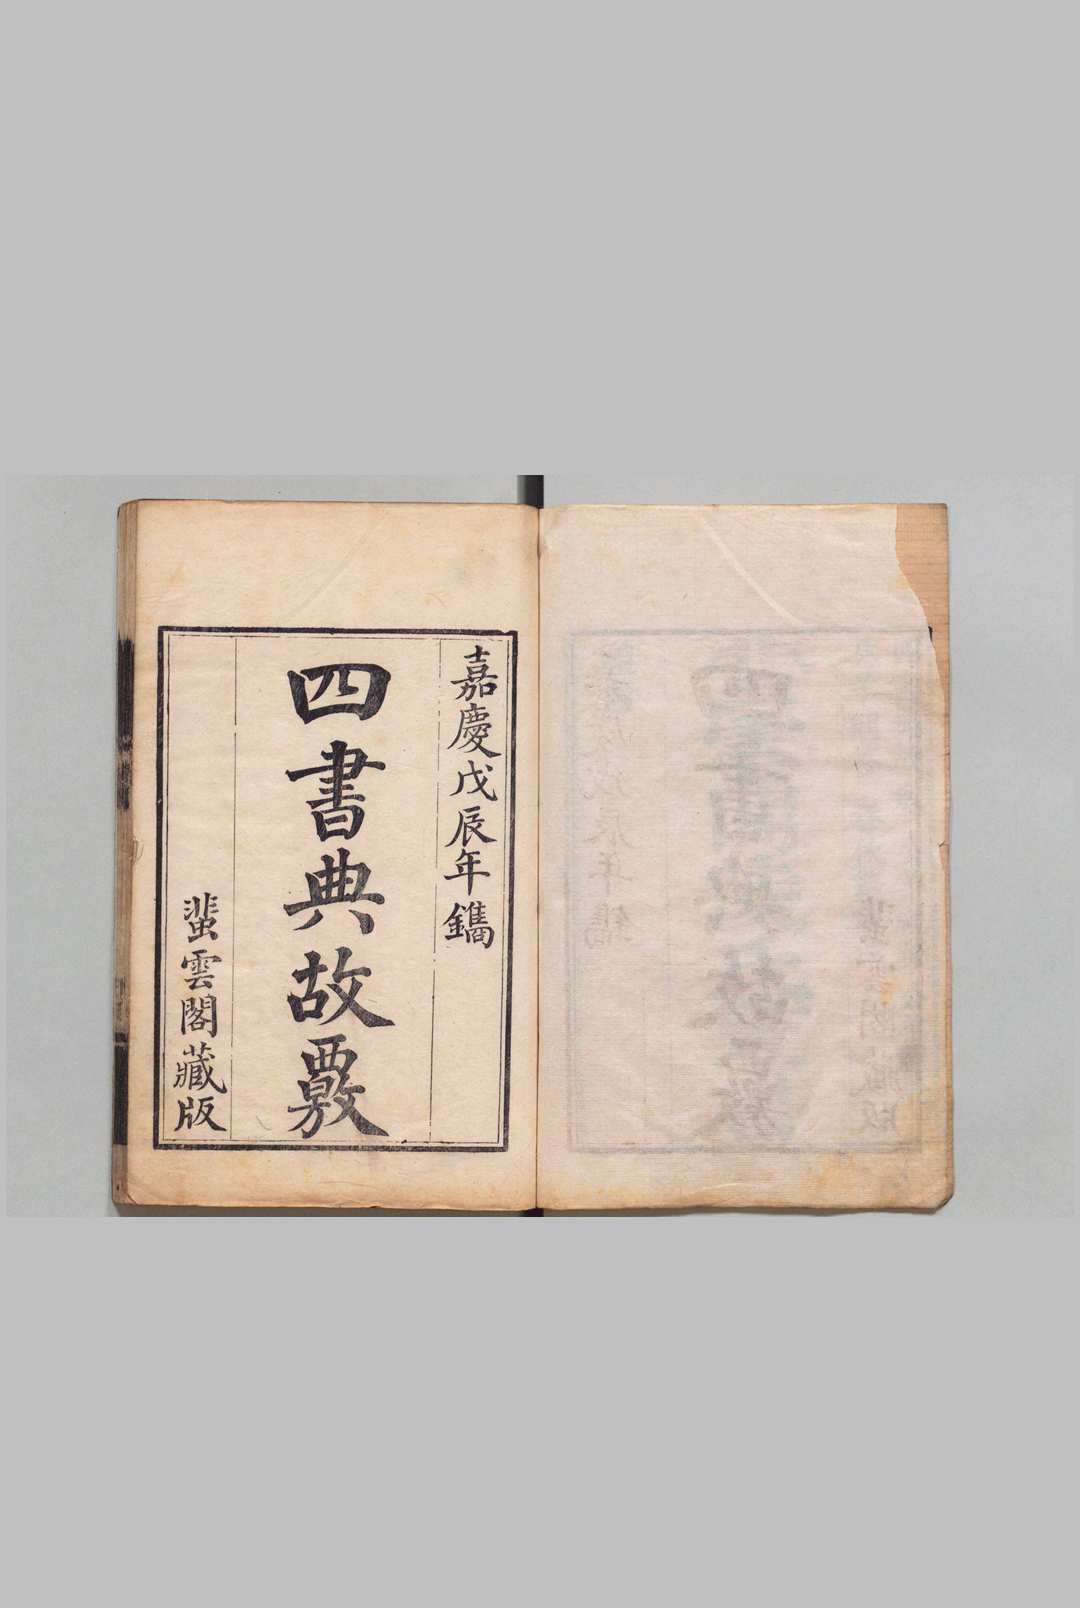 嘉慶戊辰年鐫
四書典故覈
蜚雲閣藏版